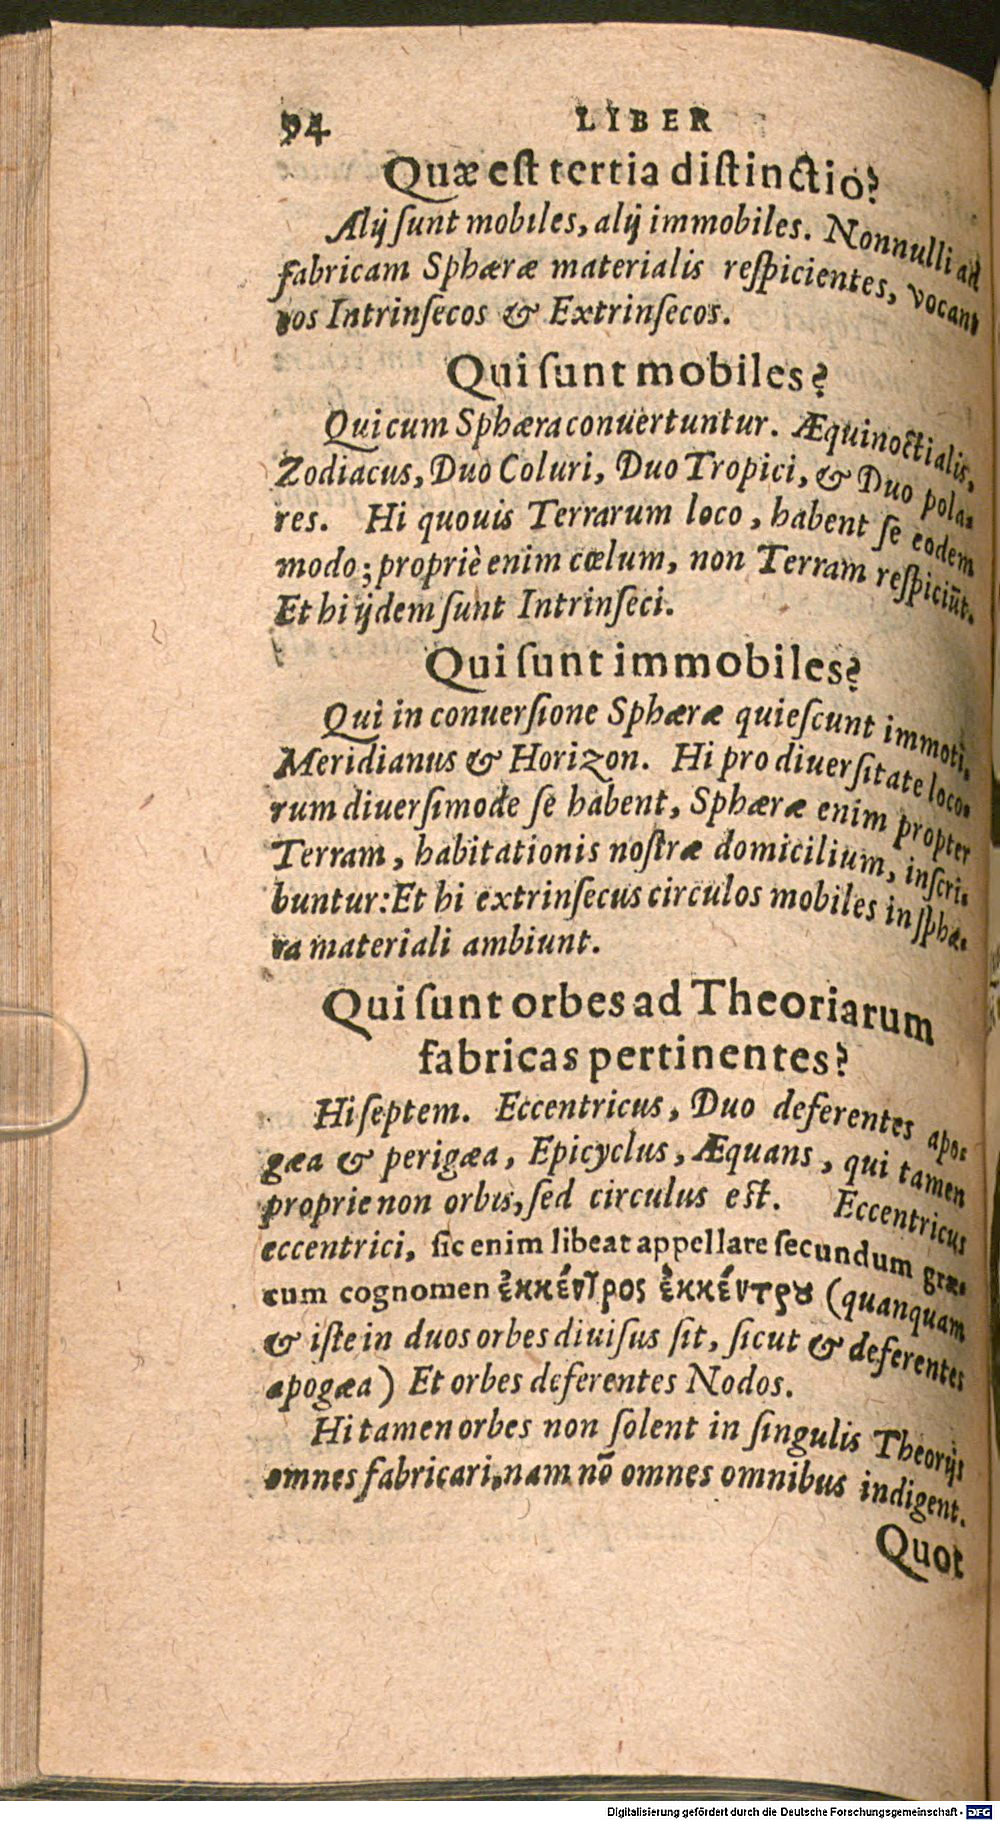 94 LIBER
Quæ est tertia distinctio?
Alij sunt mobiles, alij immobiles. Nonnulli ad
fabricam Sphæræ materialis respicientes, vocant
vos Intrinsecos & Extrinsecos.
Qui sunt mobiles?
Qui cum Sphæra conuertuntur. Æquinoctialis,
Zodiacus, Duo Coluri, Duo Tropici, & Duo pola-
res. Hi quouis Terrarum loco, habent se eodem
modo; propriè enim cœlum, non Terram respiciūt.
Et hi ijdem sunt Intrinseci.
Qui sunt immobiles?
Qui in conuersione Sphæræ quiescunt immoti,
Meridianus & Horizon. Hi pro diuersitate loco-
rum diuersimode se habent, Sphæræ enim propter
Terram, habitationis nostræ domicilium, inscri-
buntur: Et hi extrinsecus circulos mobiles in sphæ-
ra materiali ambiunt.
Qui sunt orbes ad Theoriarum
fabricas pertinentes?
Hi septem. Eccentricus, Duo deferentes apo-
gæa & perigæa, Epicyclus, Æquans, qui tamen
proprie non orbis, sed circulus est. Eccentricus
eccentrici, sic enim libeat appellare secundum græ-
cum cognomen ἐκκέντρος ἐκκέντρȣ (quanquam
& iste in duos orbes diuisus sit, sicut & deferentes
apogæa) Et orbes deferentes Nodos.
Hi tamen orbes non solent in singulis Theorijs
omnes fabricari, nam nō omnes omnibus indigent.
Quot
Digitalisierung gefördert durch die Deutsche Forschungsgemeinschaft - DFG